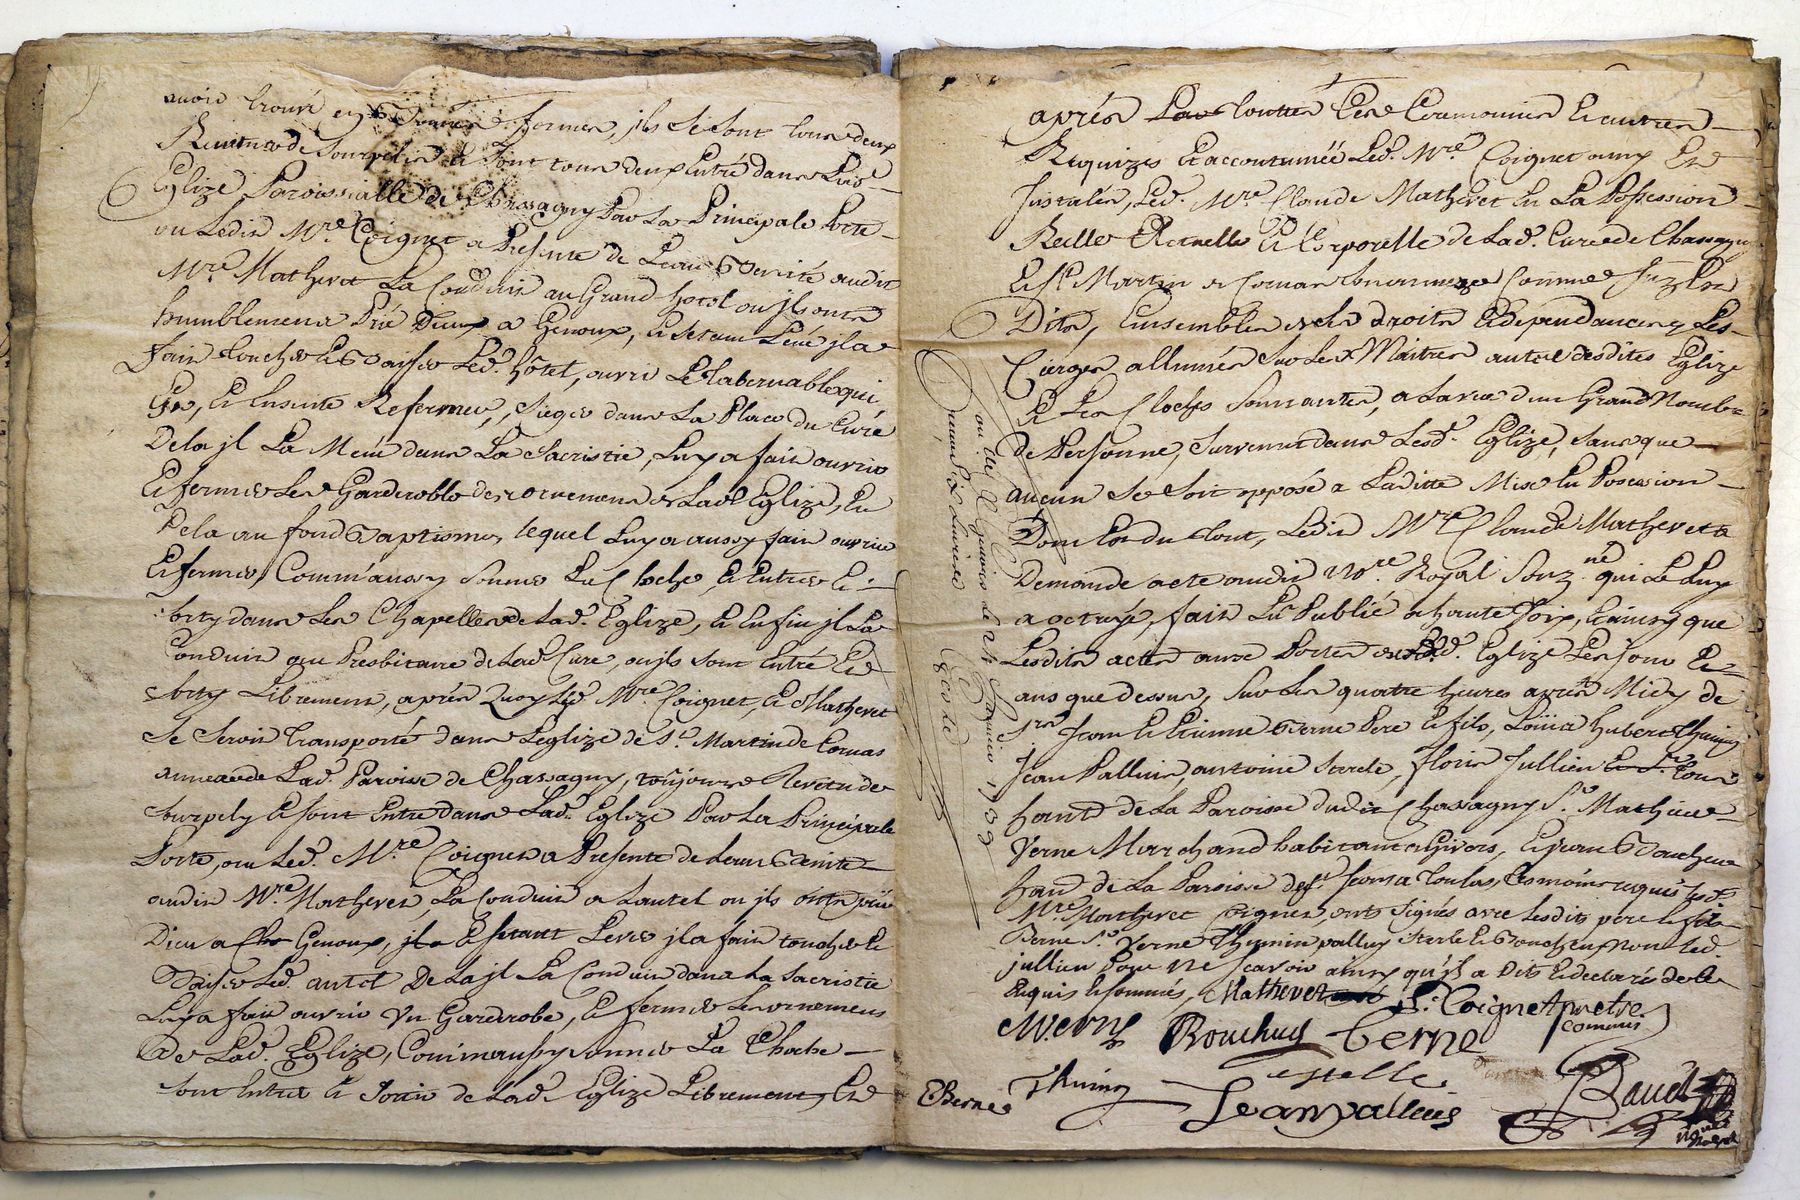 avoir trouvé en bonnes formes, ils se sont tous deux
Revetus de Sourpelis et sont tous deux Entré dans Lad.
Eglize Paroissialle de Chassagny Par La Principale Porte
ou Ledit Mre Coignet a Presenté de Leau Benite audit
Mre Matheret La Conduit au Grand hotel ou ils ont
humblement Prié Dieux a Genoux, et setant Levé il a
fait toucher et Baiser Led. hôtel, ouvrir Le Tabernable qui
Est, et Ensuite Refermer, sieger dans La Place du Curé
De la il La Mené dans La Sacristie, Luy a fait ouvrir
Et fermer Les Garderobbe des ornemens de Lad. Eglize, Et
De la au fond Baptismes, lequel Luy a aussy fait ouvrir
Et fermer, Comm'aussy sonner La Cloche, et Entrer Et
sorty dans Les Chapelles de Lad. Eglize, et Enfin il La
Conduit au Presbitaire de Lad. Cure, ou ils sont Entré Et
sorty Librement, après Quoy Led. Mre Coignet, et Matheret
se seroit transporté dans Leglize de St. Martin de Cornas
annexe de Lad. Paroisse de Chassagny, toujours Revetu de
surpely et sont Entre dans Lad. Eglize Par La Principale
Porte, ou Led. Mre Coignet a Presenté de Leau Benite
audit Mre Matheret, La Conduit a Lautel ou ils ont prié
Dieu a Genoux, il Et setant Levée il a fait toucher et
Baiser Led. autel De la il La Conduit dans La Sacristie
Luy a fait ouvrir Un Garderobe, et fermer Les ornemens
de Lad. Eglize, Comm'aussy sonner La Cloche
sont Entré et Sortir de Lad. Eglize Librement, Et
après toutes Les Ceremonies Et autres
Requizes Et accoutumée Led. Mre Coignet a mis Et
Jnstaler, Led. Mre Claude Matheret En La Possession
Reelle Actuelle Et Corporelle de Lad. Cure de Chassagny
Et St. Martin de Cornas son annexe Comme
Dits, Ensembles des droits Et dependances, Les
Cierges allumés sur Les Maitres autel desdites Eglize
Et Les Cloches sonnantes, a La vue d'un Grand Nombre
de Personne, survenue dans Lesd. Eglize, sans que
aucun se soit opposé a Laditte Mise En Possession
Dont Et du tout, Ledit Mre Claude Matheret a
Demandé acte audit Nore Royal Souzné qui Le Luy
a octroyé, fait Lu Publié a haute Voix, Et ainsy que
Lesdits actes aux Portes de Lad. Eglize Les jour Et
ans que dessus, sur Les quatre heures après Midy de
Srs Jean et Etienne Berne Pere et fils, Loüis hubert Thivin
Jean Palluis, antoine Sterle, floris Jullien tous
hant de La Paroisse dudit Chassagny Sr. Mathieu
Verne Marchand habitant a Givors, Et Jean Bouchu
hant de La Paroisse de St. Jean a Toulas, tesmoins requis Lesd.
Mre Matheret Coignet, onts signés avec Lesdits pere et fils
Berne Sr. Verne Thivin palluy sterle et Bouchu, Non Led.
jullien Pour Ne scavoir ainsy qu'il a Dits Et declaré de ce
Enquis Et sommés, Matheret curé P. Coignet pretre
commis
M. Verne Bouchuy Berne
estelle
EBerne Thivin Jeanpalluis Baudr
nore
ou de Janvier 1733